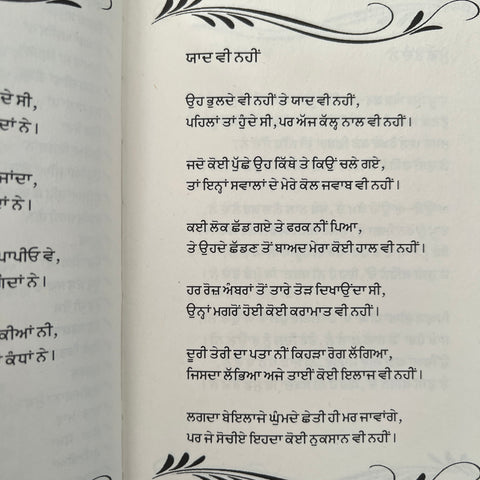 ਦੇ ਸੀ,
ਦਾਂ ਨੇ।
ਜਾਂਦਾ,
ਪਾਪੀਓ ਵੇ,
ਕੀਆਂ ਨੀ,
ਕੰਧਾਂ ਨੇ।
ਯਾਦ ਵੀ ਨਹੀਂ
ਉਹ ਭੁਲਦੇ ਵੀ ਨਹੀਂ ਤੇ ਯਾਦ ਵੀ ਨਹੀਂ,
ਪਹਿਲਾਂ ਤਾਂ ਹੁੰਦੇ ਸੀ, ਪਰ ਅੱਜ ਕੱਲ੍ਹ ਨਾਲ ਵੀ ਨਹੀਂ।
ਜਦੋ ਕੋਈ ਪੁੱਛੇ ਉਹ ਕਿੱਥੇ ਤੇ ਕਿਉਂ ਚਲੇ ਗਏ,
ਤਾਂ ਇਨ੍ਹਾਂ ਸਵਾਲਾਂ ਦੇ ਮੇਰੇ ਕੋਲ ਜਵਾਬ ਵੀ ਨਹੀਂ।
ਕਈ ਲੋਕ ਛੱਡ ਗਏ ਤੇ ਫਰਕ ਨੀਂ ਪਿਆ,
ਤੇ ਉਹਦੇ ਛੱਡਣ ਤੋਂ ਬਾਅਦ ਮੇਰਾ ਕੋਈ ਹਾਲ ਵੀ ਨਹੀਂ।
ਹਰ ਰੋਜ਼ ਅੰਬਰਾਂ ਤੋਂ ਤਾਰੇ ਤੋੜ ਦਿਖਾਉਂਦਾ ਸੀ,
ਉਨ੍ਹਾਂ ਮਗਰੋਂ ਹੋਈ ਕੋਈ ਕਰਾਮਾਤ ਵੀ ਨਹੀਂ।
ਦੂਰੀ ਤੇਰੀ ਦਾ ਪਤਾ ਨੀਂ ਕਿਹੜਾ ਰੋਗ ਲੱਗਿਆ,
ਜਿਸਦਾ ਲੱਭਿਆ ਅਜੇ ਤਾਈਂ ਕੋਈ ਇਲਾਜ ਵੀ ਨਹੀਂ।
ਲਗਦਾ ਬੇਇਲਾਜੇ ਘੁੰਮਦੇ ਛੇਤੀ ਹੀ ਮਰ ਜਾਵਾਂਗੇ,
ਪਰ ਜੇ ਸੋਚੀਏ ਇਹਦਾ ਕੋਈ ਨੁਕਸਾਨ ਵੀ ਨਹੀਂ।